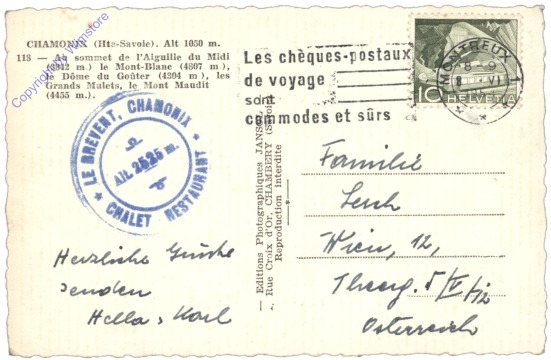 CHAMONIX (Hte-Savoie). Alt 1050 m.
118 — Au sommet de l'Aiguille du Midi
(3842 m.) le Mont-Blanc (4807 m.),
le Dôme du Goûter (4304 m.), les
Grands Mulets, le Mont Maudit
(4455 m.).
Les chèques-postaux
de voyage
sont
commodes et sûrs
MONTREUX 1
8-9
8. VI
10 HELVETIA
★ LE BREVENT, CHAMONIX ★
Alt. 2525 m.
CHALET RESTAURANT
Editions Photographiques JANSOL
Rue Croix d'Or, CHAMBERY (Savoie)
Reproduction interdite
Familie
Wien, 12,
Österreich
Herzliche Grüße
senden
Hella, Karl